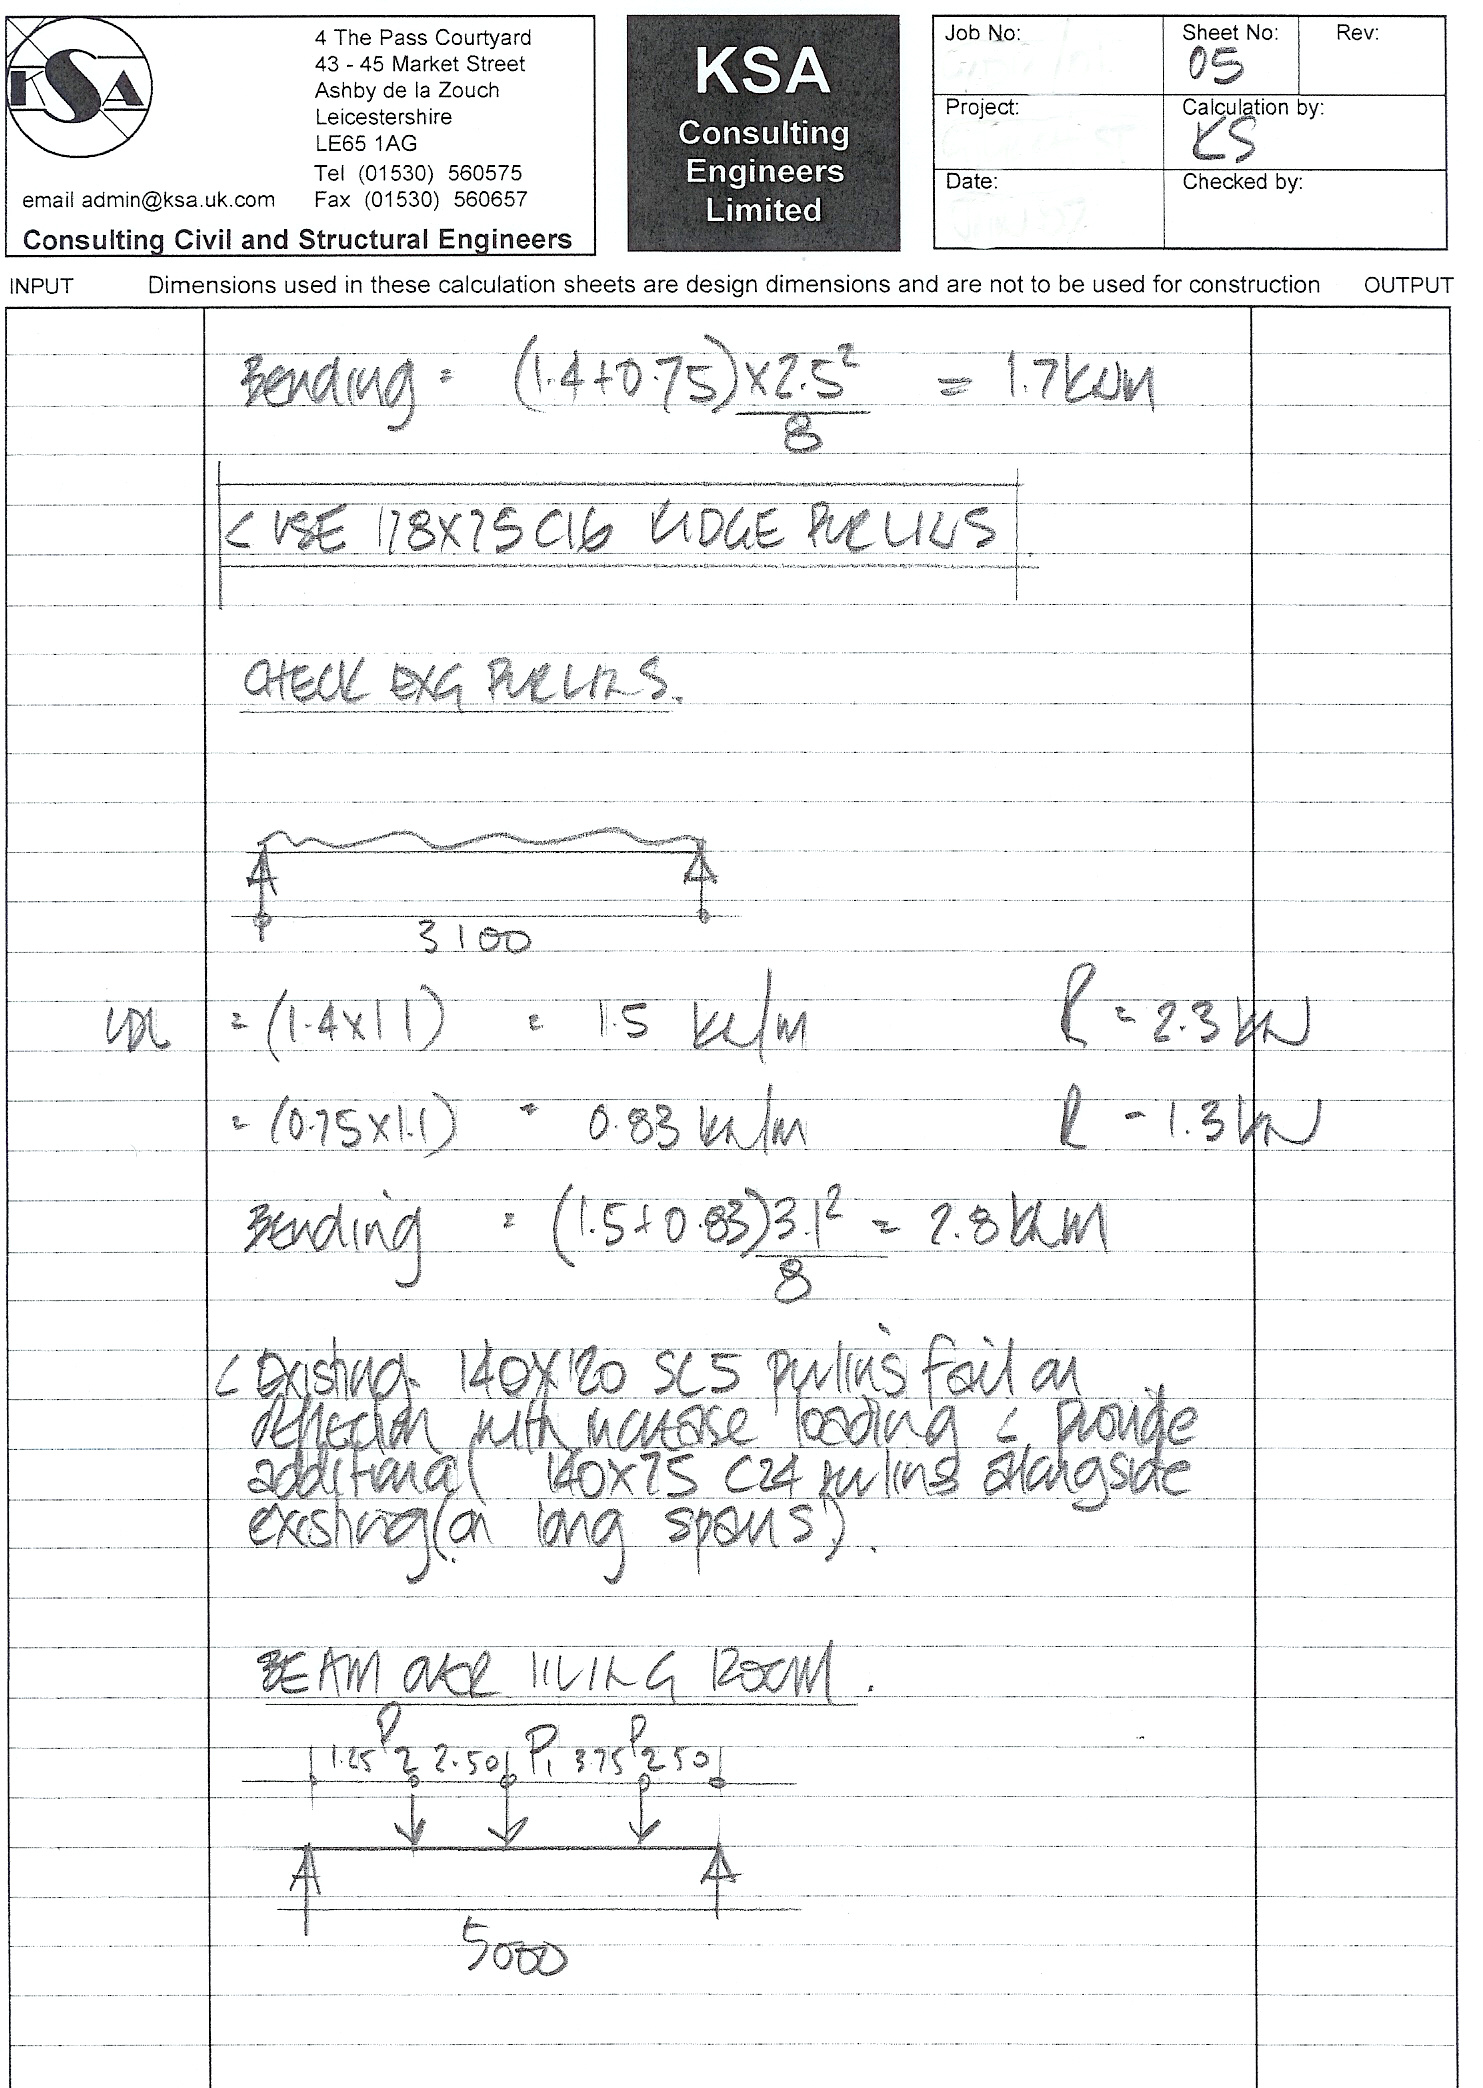 KSA
4 The Pass Courtyard
43 - 45 Market Street
Ashby de la Zouch
Leicestershire
LE65 1AG
Tel (01530) 560575
email admin@ksa.uk.com Fax (01530) 560657
Consulting Civil and Structural Engineers
KSA
Consulting
Engineers
Limited
Job No:
Sheet No: 05
Rev:
Project:
Calculation by: KS
Date:
Checked by:
INPUT Dimensions used in these calculation sheets are design dimensions and are not to be used for construction OUTPUT
Bending = (1.4+0.75)x2.5² = 1.7kNm
8
< USE 178x75 C16 RIDGE PURLINS
CHECK EXG PURLINS.
3100
UDL = (1.4x1.1) = 1.5 kN/m R = 2.3kN
= (0.75x1.1) = 0.83 kN/m R = 1.3kN
Bending = (1.5+0.83)3.1² = 2.8kNm
8
< Existing 140x120 SC5 purlins fail on
deflection with increase loading < provide
additional 140x75 C24 purlins alongside
existing (on long spans).
BEAM OVER LIVING ROOM.
1.25 P2 2.50 P1 3.75 P2 50
5000